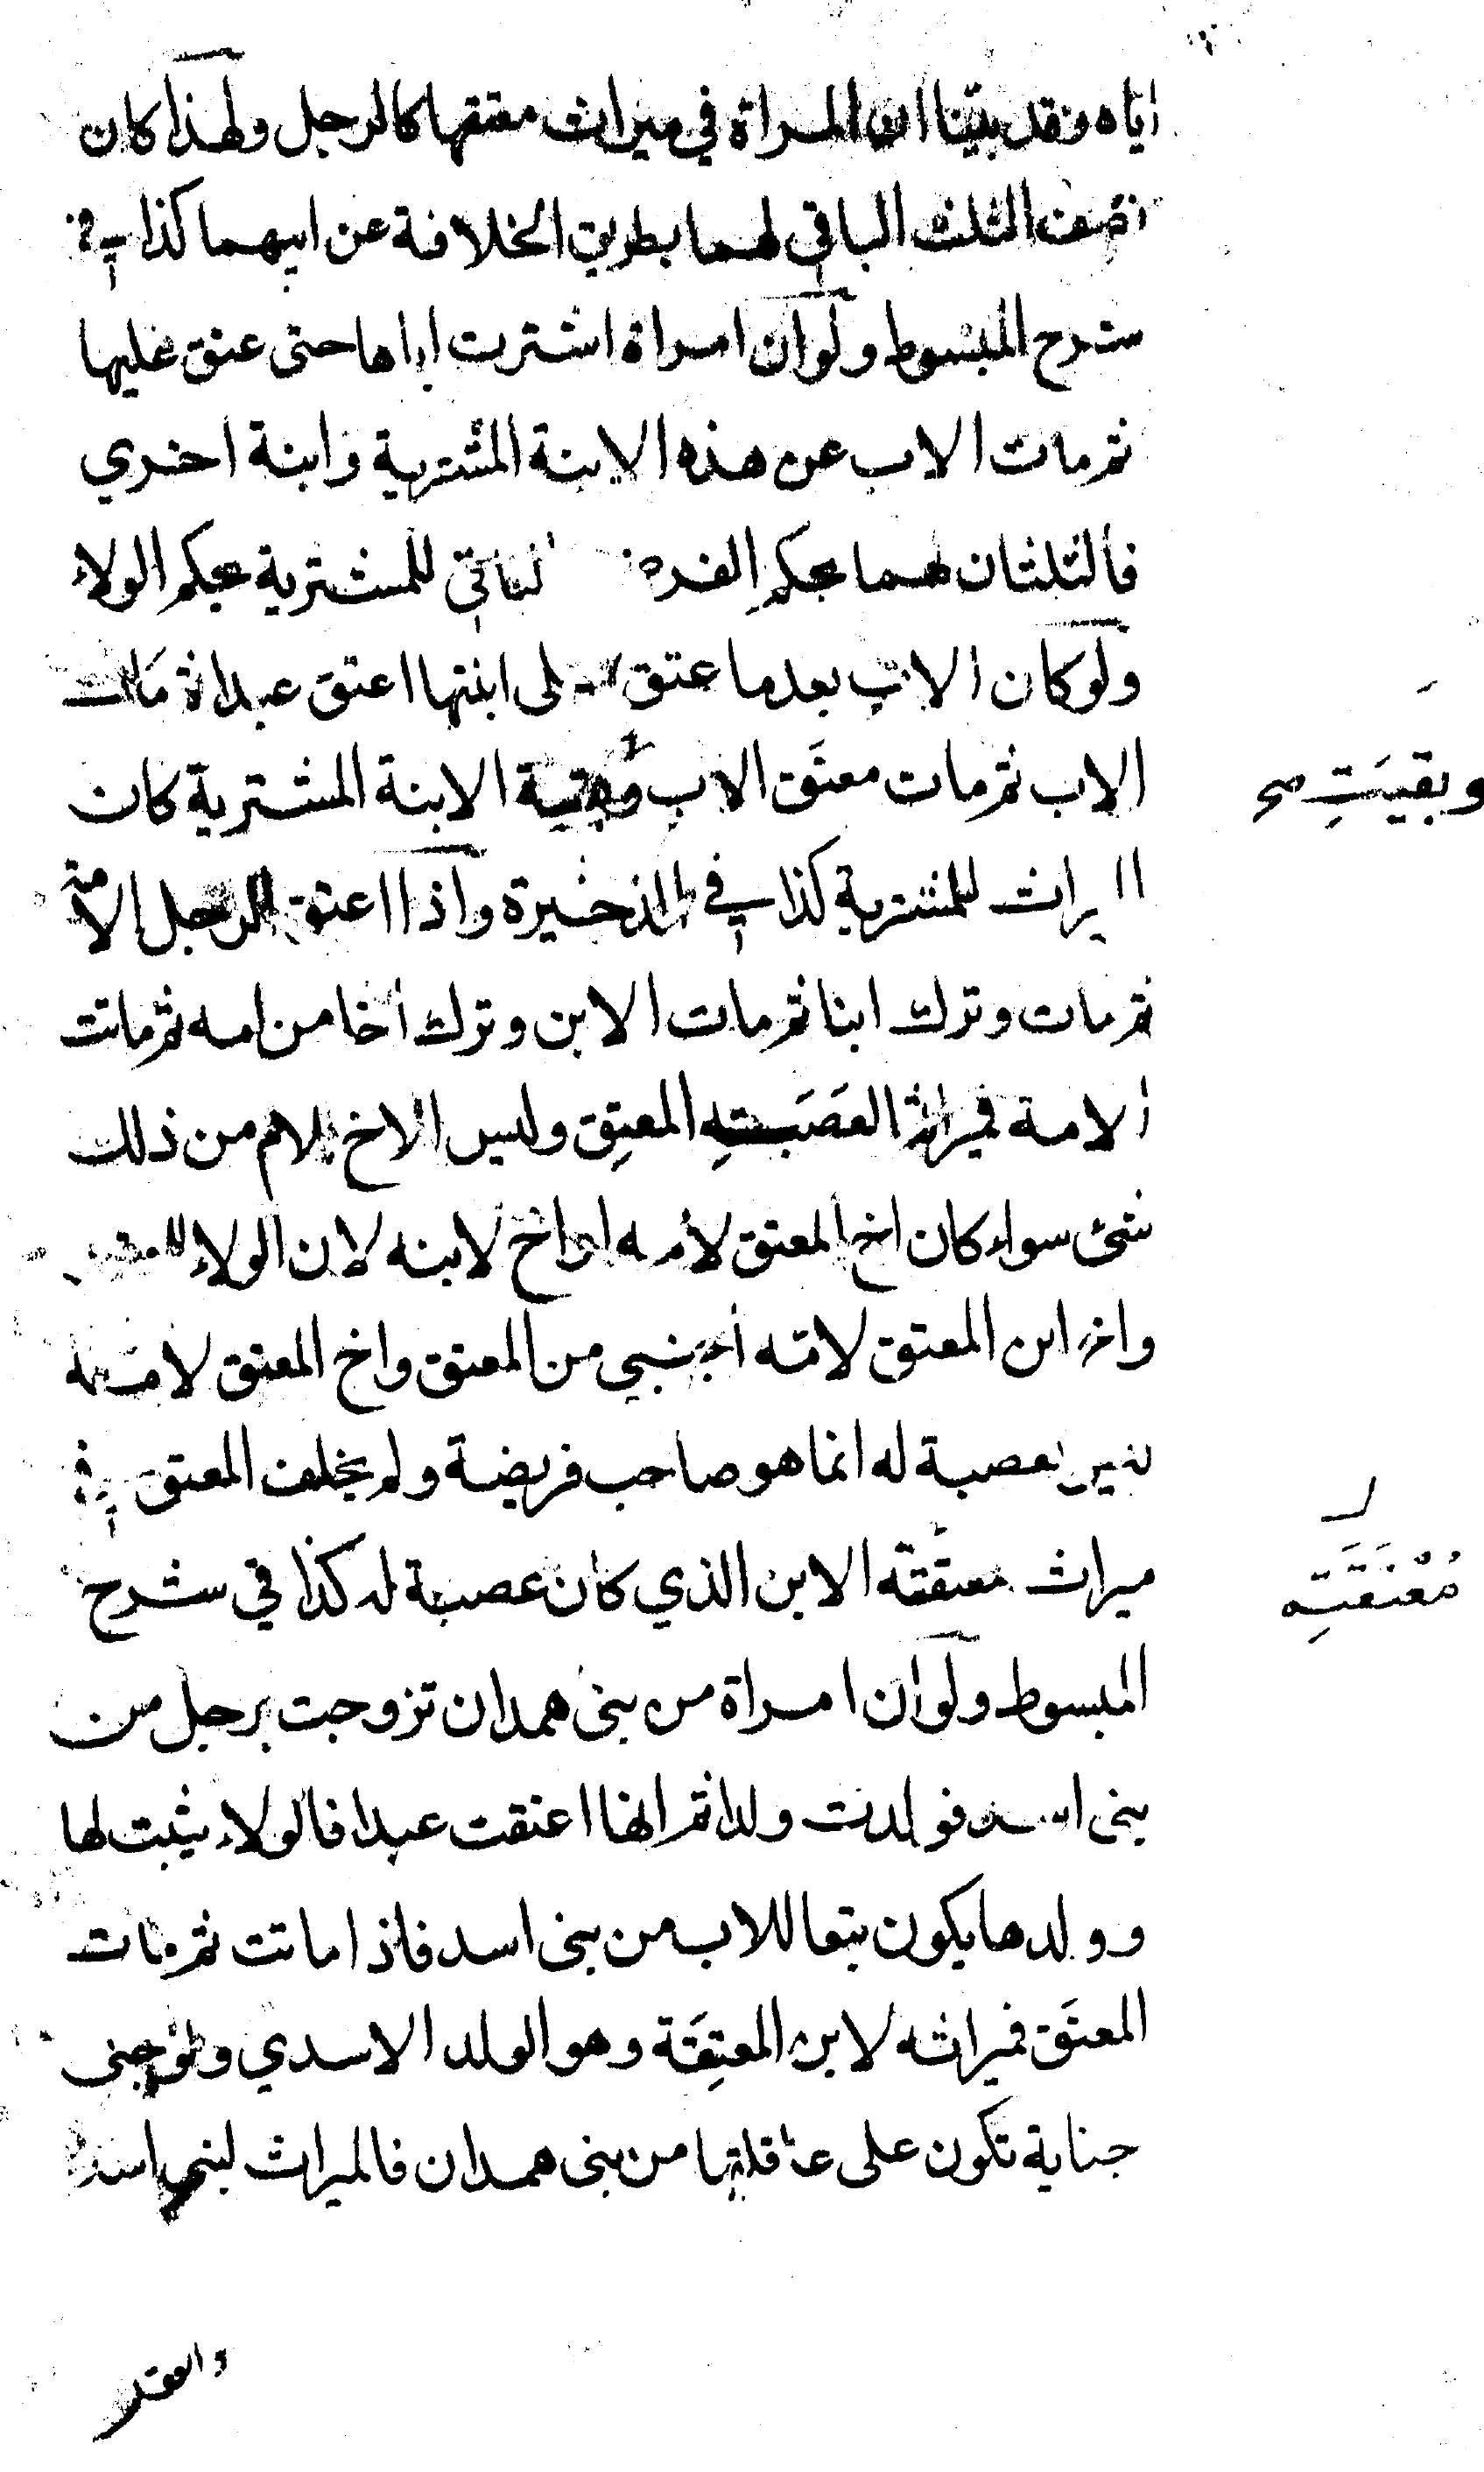 اياه وقد بينا ان المراة في ميراث معتقها كالرجل ولهذا كان
نصف الثلث الباقي لهما بطريق الخلافة عن ابيهما كذا في
شرح المبسوط ولو ان امراة اشترت اباها حتى عتق عليها
ثم مات الاب عن هذه الابنة المشترية وابنة اخري
فالثلثان لهما بحكم الفرض الباقي للمشترية بحكم الولاء
ولو كان الاب بعدما عتق على ابنتها اعتق عبدا ثم مات
الاب ثم مات معتَق الاب وبقيت الابنة المشترية كان
وبقيَتِ صح
الميراث للمشترية كذا في الذخيرة واذا اعتق الرجل الامة
ثم مات وترك ابنا ثم مات الابن وترك اخا من امه ثم ماتت
الامة فميراثها لعَصَبَتِهِ المعتِق وليس الاخ للام من ذلك
شئ سواء كان اخ المعتق لامه او اخ لابنه لان الولاء للمعتق
واخ ابن المعتق لامه اجنبي من المعتق واخ المعتق لامه
ليس بعصبة له انما هو صاحب فريضة ولم يخلف المعتق في
ميراث معتقته الابن الذي كان عصبة له كذا في شرح
مُعْتَقَتِه
المبسوط ولو ان امراة من بني همدان تزوجت برجل من
بني اسد فولدت ولدا ثم انها اعتقت عبدا فالولاء يثبت لها
وولدها يكون تبعا للاب من بني اسد فاذا ماتت ثم مات
المعتَق فميراثه لابن المعتِقَة وهو الولد الاسدي ولو جنى
جناية تكون على عاقلتها من بني همدان فالميراث لبني اسد
والعقل